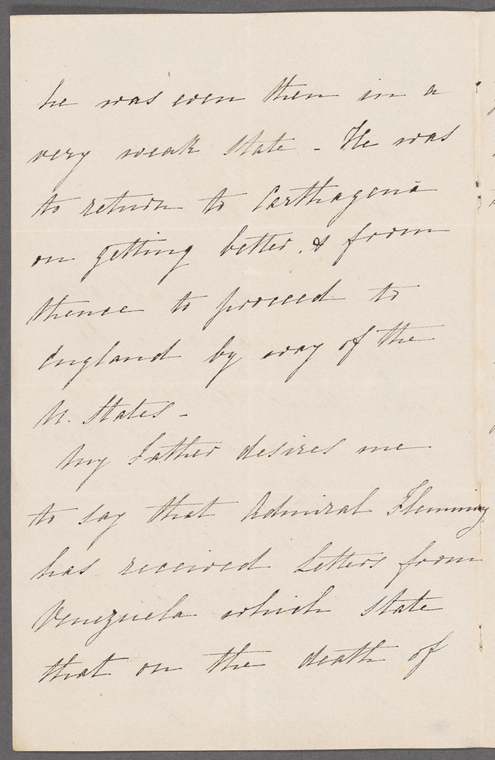 he was even then in a
very weak state - He was
to return to Carthagena
on getting better, & from
thence to proceed to
England by way of the
U. States -
My Father desires me
to say that Admiral Fleming
has received Letters from
Venezuela which state
that on the death of